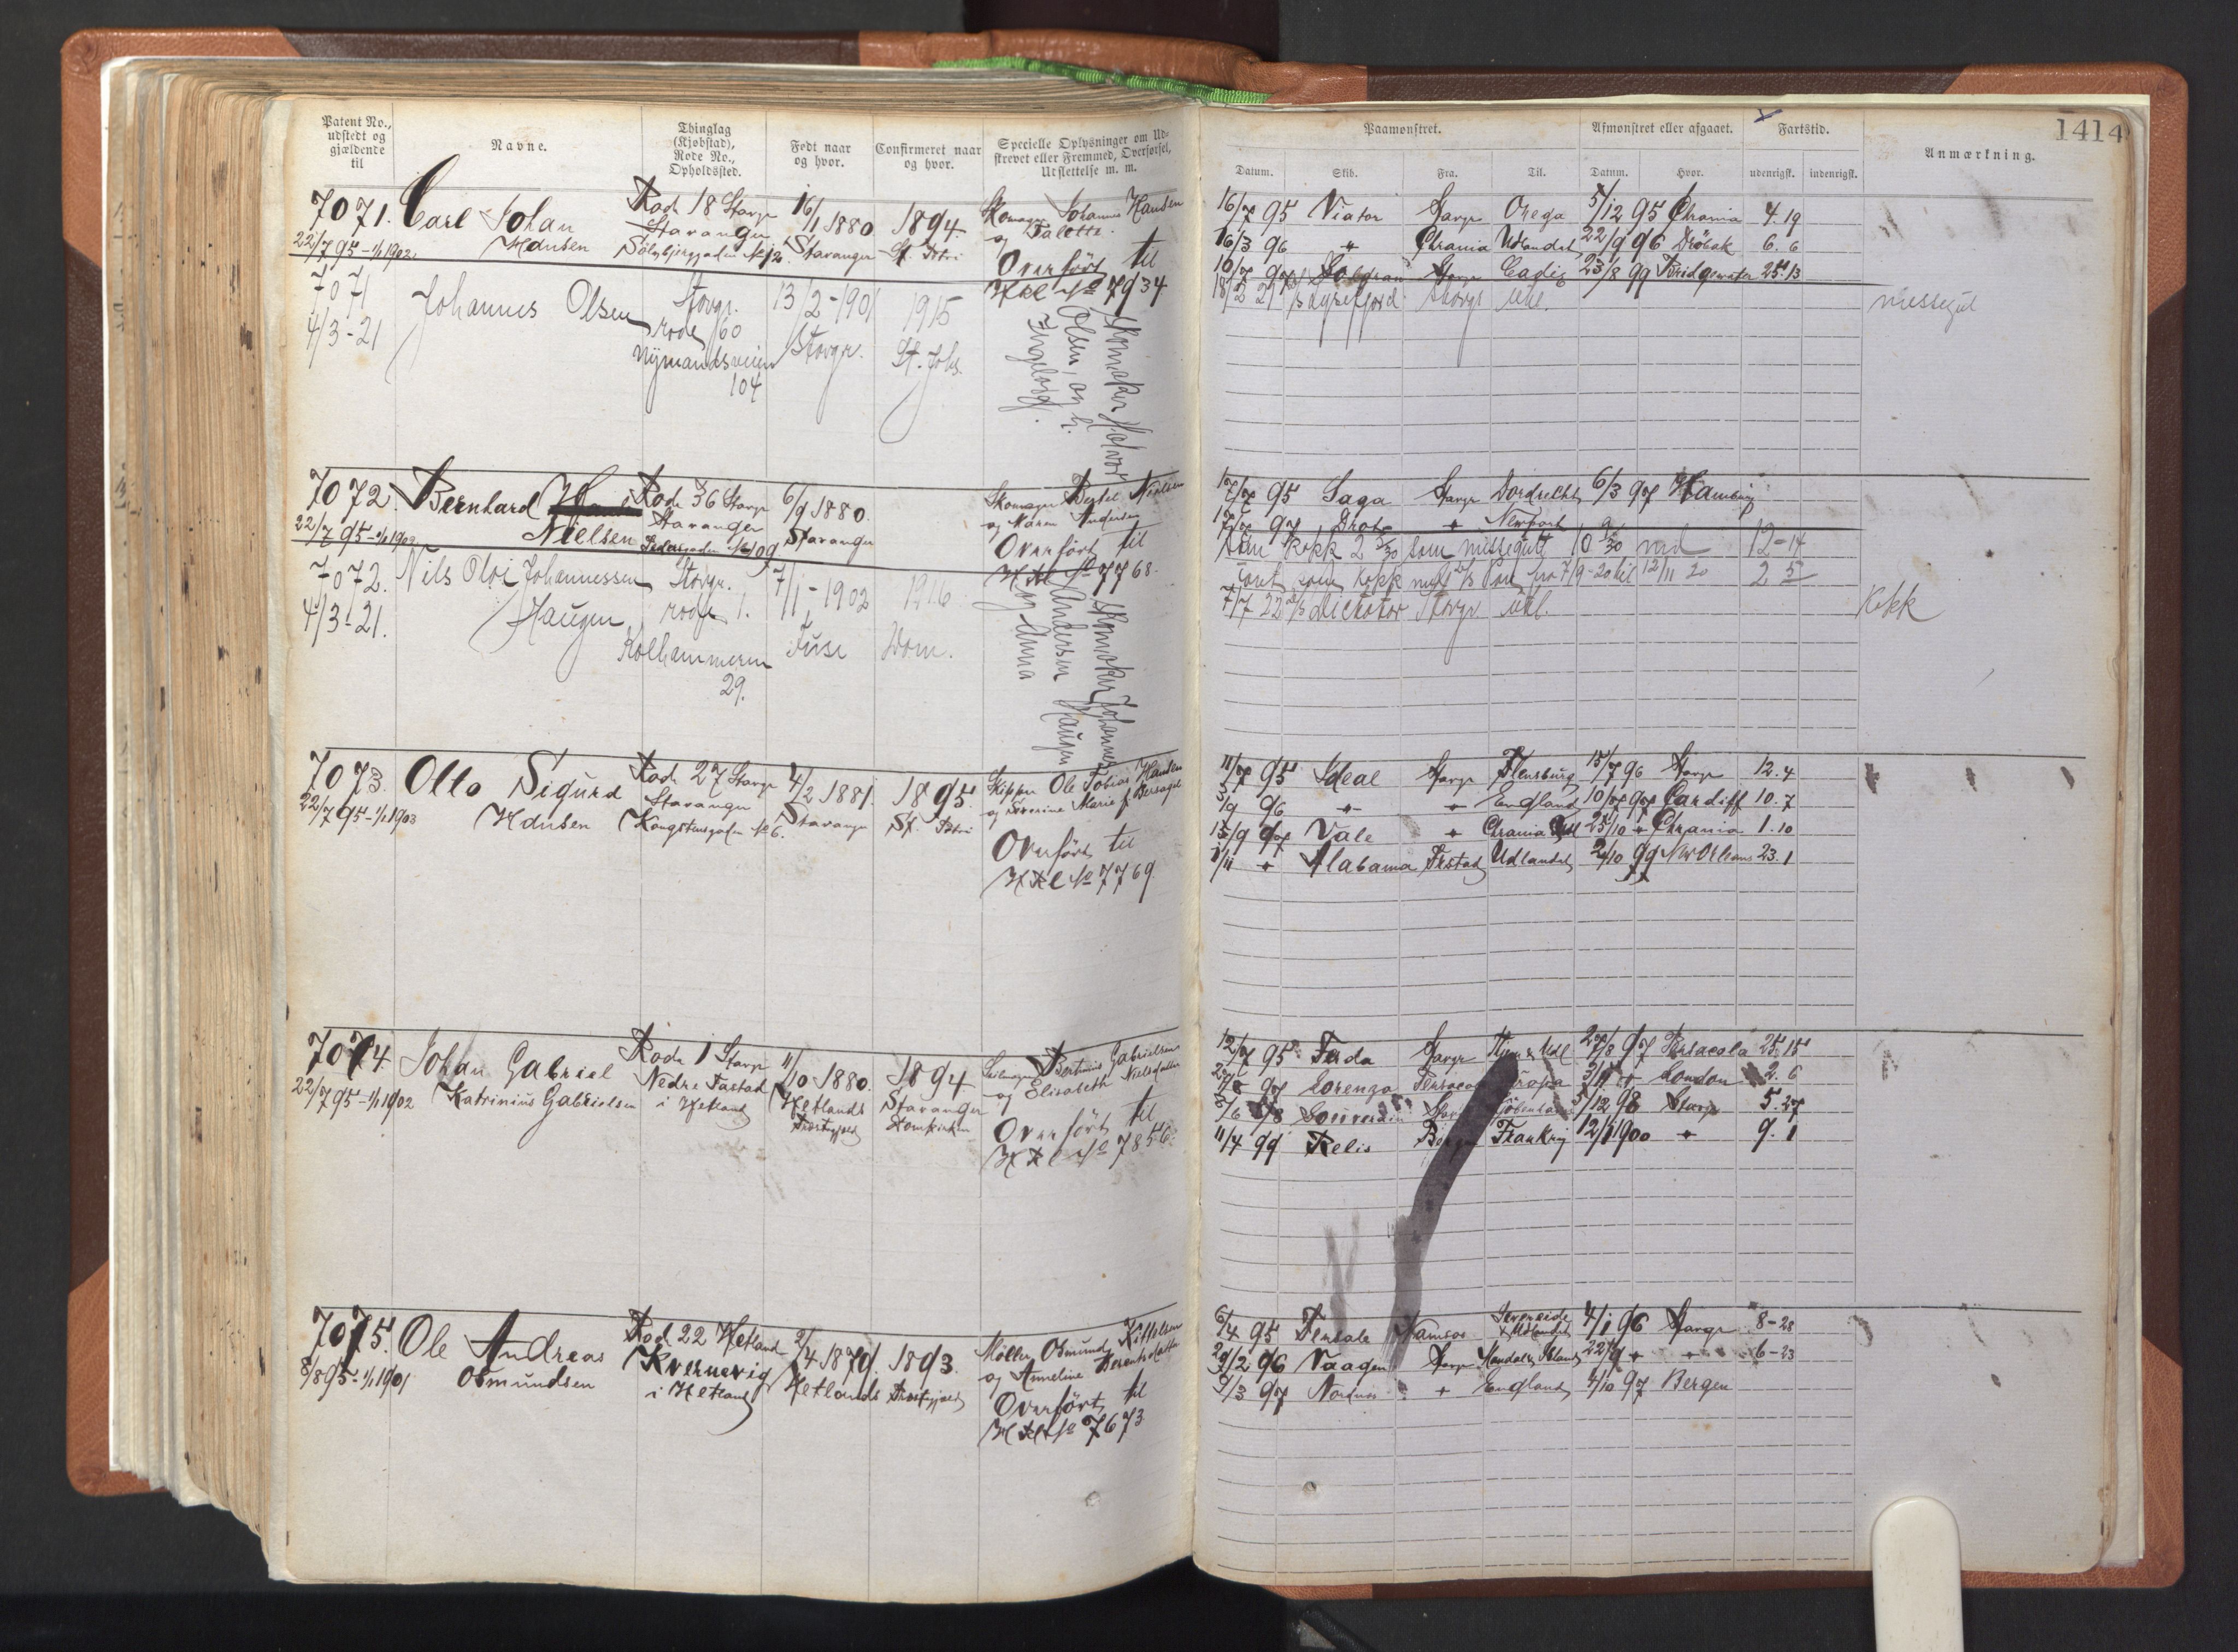 Patent No., udstedt og gjældende til
Navne.
Thinglag (Kjøbstad), Rode No., Opholdssted.
Født naar og hvor.
Confirmeret naar og hvor.
Specielle Oplysninger om Udskrevet eller Fremmed, Overførsel, Udslettelse m. m.
7071. Carl Johan Rode 18 Stavgr 16/1 1880. 1894. Skomager Johannes Hansen
22/7 95 - 1/1 1902. Hansen Stavanger Stavanger St. Petri og Talette.
Sölvbjerggaden No 12.
Overført til
Hkl No 7934
7071 Johannes Olsen Stavgr. 13/2-1901 1915
4/3-21 rode 60 Stavgr. St. Johs.
Nymandsveien
104
Skomaker Halvor
Olsen, og h.
Ingeborg.
7072. Bernhard Rode 36 Stavgr 6/9 1880. Skomager Bertel Nielsen
22/7 95 - 1/1 1902 Nielsen Stavanger Stavanger og Maren Andersen
Pedersgaden No 109
Overført til
Hkl No 7768.
7072. Nils Olai Johannessen Stavgr. 7/1-1902 1916
4/3-21. Haugen rode 1. Fuse Dom.
Kolhammeren
29.
Skomaker Johannes
Andersen Haugen
og Anna
7073. Otto Sigurd Rode 27 Stavgr 4/2 1881. 1895. Skipper Ole Tobias Hansen
22/7 95 - 1/1 1903 Hansen Stavanger Stavanger St. Petri og Severine Marie f. Bersagel
Kongstensgaden No 6.
Overført til
Hkl No 7769
7074. Johan Gabriel Rode 1 Stavgr 11/10 1880. 1894 Bertinius Gabrielsen
22/7 95 - 1/1 1902 Katrinius Gabrielsen Nedre Tastad Hetlands Stavanger og Elisabeth Nielsdatter
i Hetland Præstegjæld Domkirken
Overført til
Hkl No 7856.
7075. Ole Andreas Rod 22 Hetland 2/4 1879. 1893. Møller Osmund Kittelsen
8/8 95 - 1/1 1901 Osmundsen Kvernevig Hetlands Præstegjæld og Anneline Berentsdatter
i Hetland
Overført til
Hkl No 7673
Paamønstret.
Afmønstret eller afgaaet.
Fartstid.
Anmærkning.
1414
Datum. Skib. Fra. Til. Datum. Hvor. udenrigsk. indenrigsk.
16/7 95 Viator Stavgr Onega 5/12 95 Chrania 4. 19
16/3 96 " Chrania Udlandet 22/9 96 Drøbak 6. 6
10/7 97 Stavgr Cadiz 23/8 99 Bridgewater 25. 13
18/2 21 D/S Lysefjord Stavgr Utl. messegut
17/7 95 Saga Stavgr Dordrecht 6/3 97 Hamburg
17/7 97 Drot " Newport
Som kokk 2 5/30 som messegutt 10 9/30 med 12-14
Faret som kokk med D/S fra 7/9-20 til 12/11 20 2 5
7/7 22 D/S Dictator Stavgr Utl. Kokk
11/7 95 Ideal Stavgr Flensburg 15/7 96 Stavgr 12. 4
3/9 96 " " England 10/7 97 Cardiff 10. 7
15/9 97 Vale " Chrania Udl 25/10 " Chrania 1. 10
1/11 " Alabama Frstad Udlandet 2/10 99 New Orleans 23. 1
12/7 95 Fada Stavgr Udl 27/8 97 Pensacola 25. 15
Lorenzo Pensacola London 2. 6
5/12 98 Stavgr 5. 27
11/4 99 Felis Bergen Frankrig 12/1 1900 " 9. 1
6/4 95 Namsos Udlandet 4/1 96 Stavgr 8-28
29/2 96 Vaagen Stavgr 22/9 " " 6-23
9/3 97 " England 4/10 97 Bergen